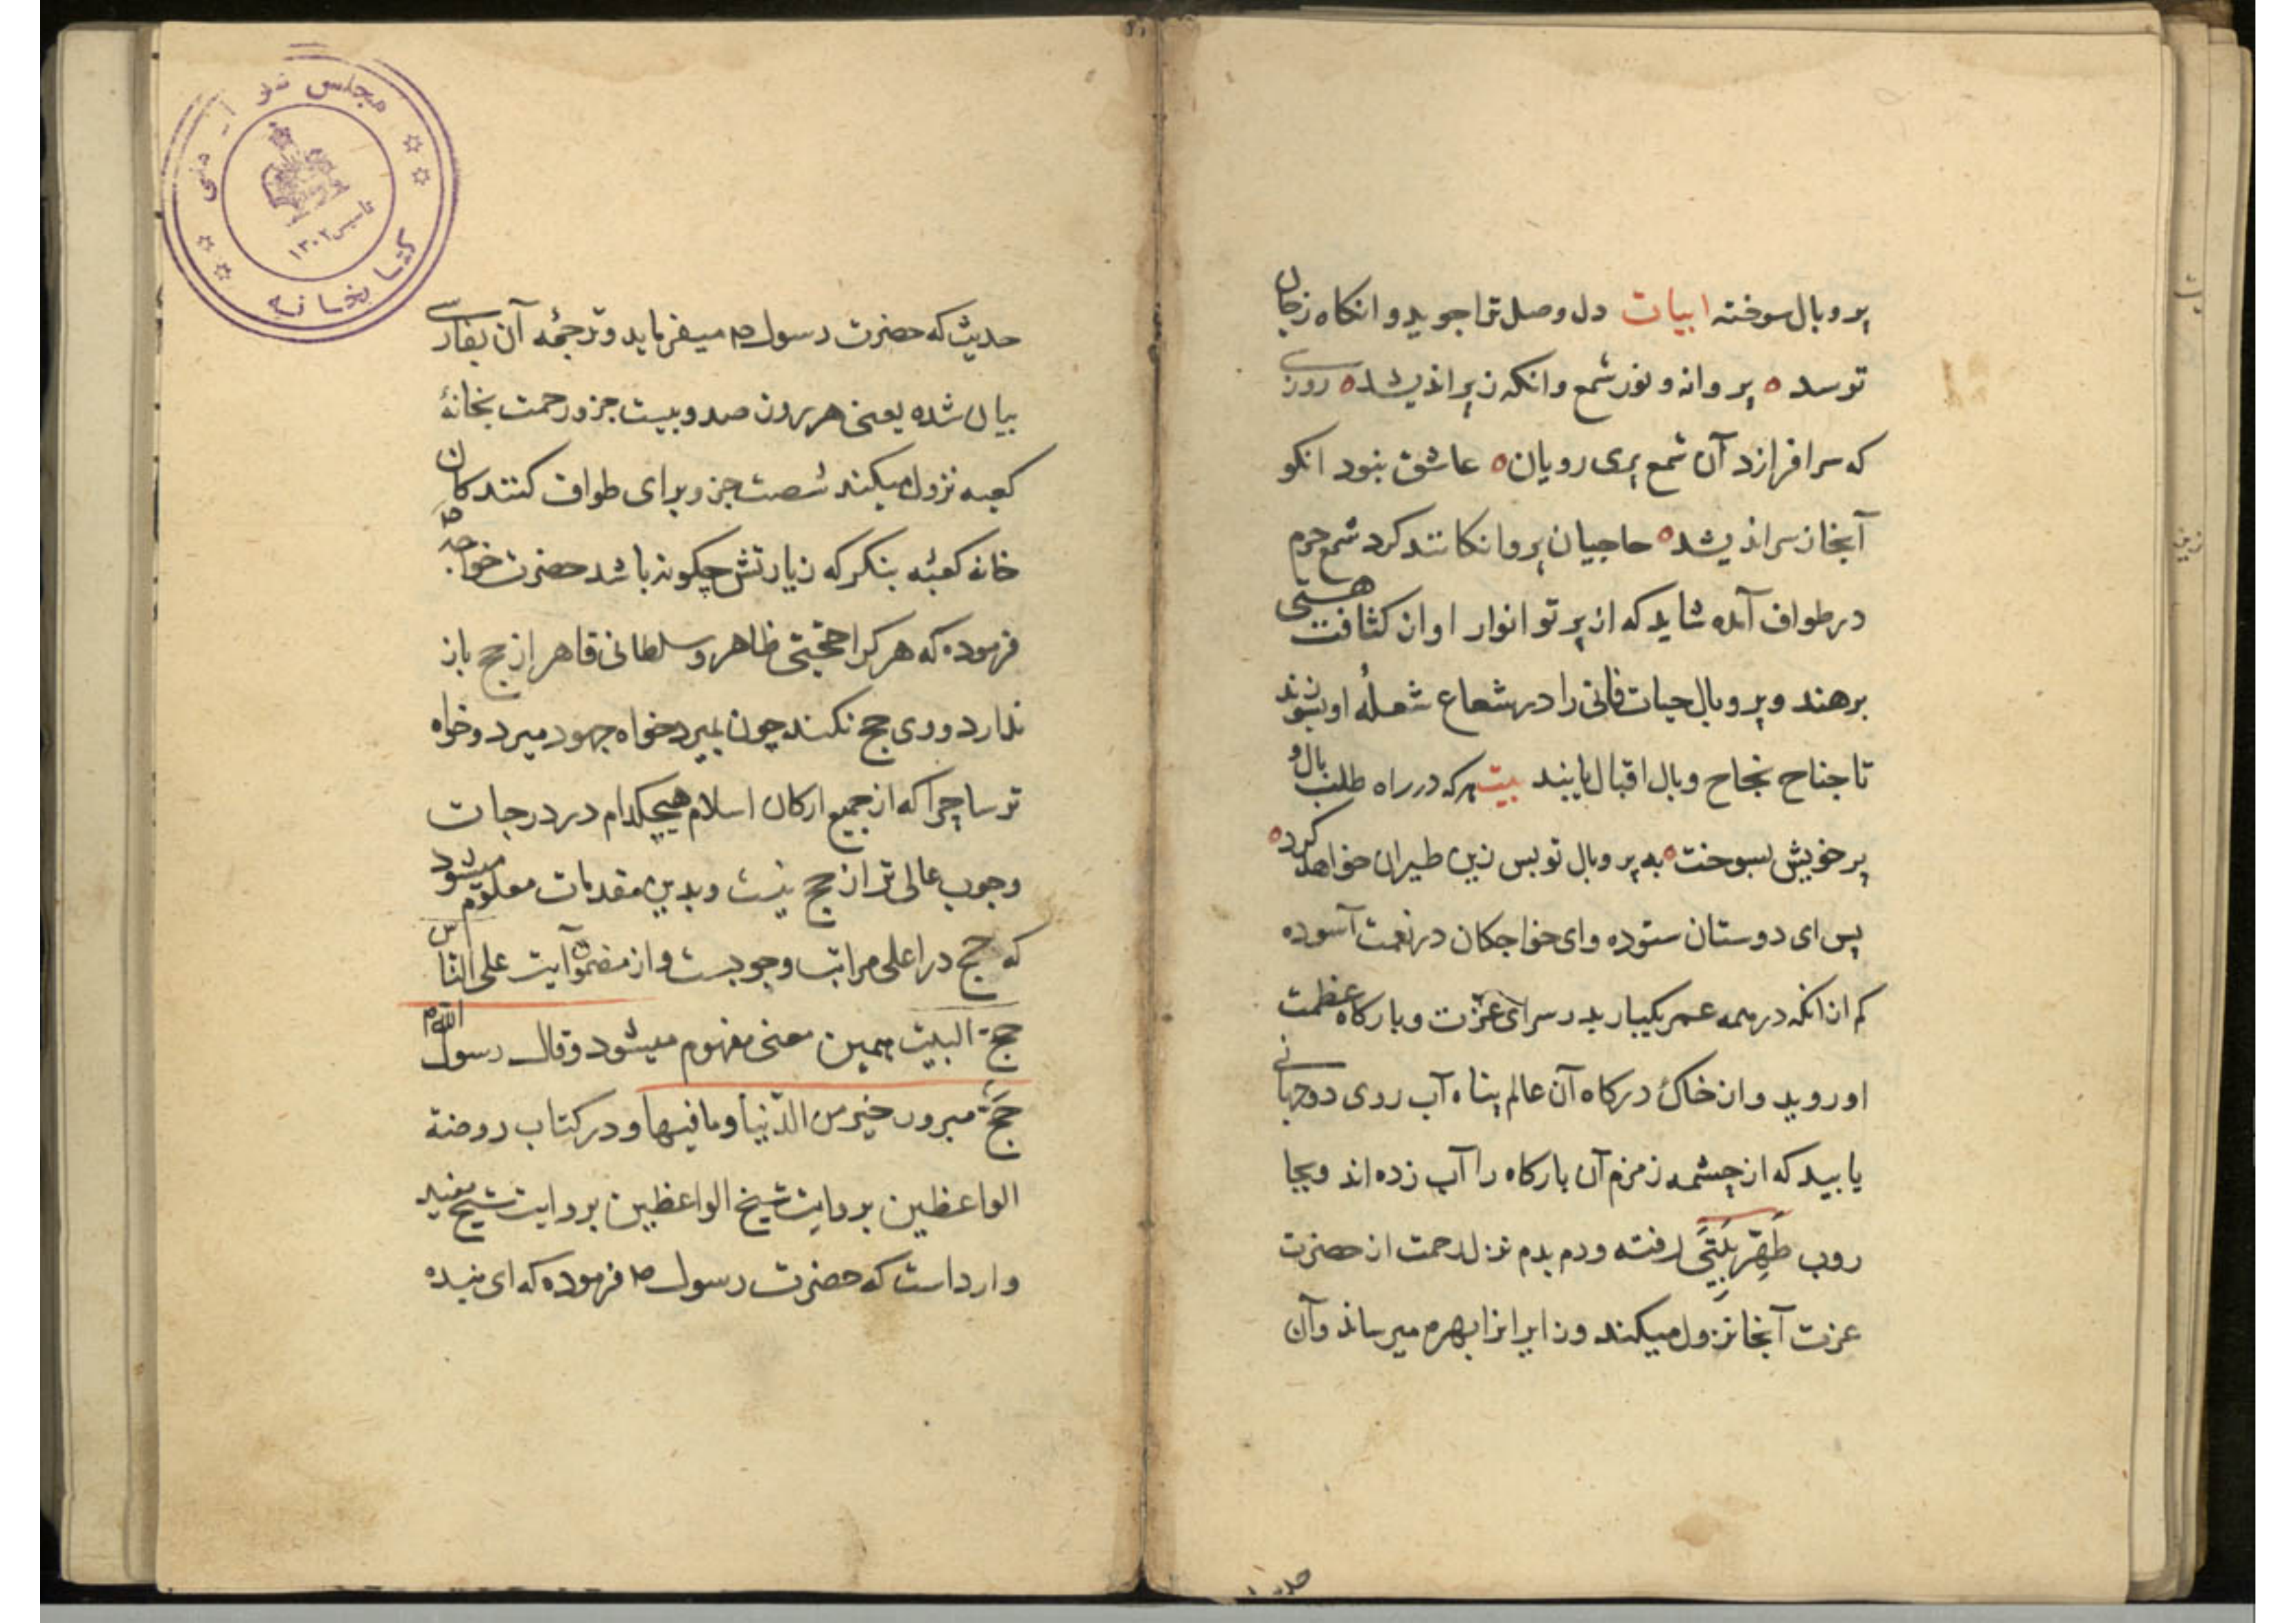 پر و بال سوخته ابیات دل وصل ترا جوید و انکاه ز جان
تو رسد ه پروانه و نور شمع وانکه ز پر اندیشد ه روزی
که سر افرازد آن شمع پری رویان ه عاشق نبود انکو
آنجا ز سر اندیشد ه حاجیان پروانکانند کرد شمع حرم
در طواف آمده شاید که از پرتو انوار او از کثافت هستی
برهند و پر و بال حیات فانی را در شعاع شعلهٔ او بسوزند
تا جناح نجاح و بال اقبال یابند بیت هر که در راه طلب بال و
پر خویش بسوخت ه به پر و بال تو بس زین طیران خواهد کرد ه
پس ای دوستان ستوده و ای خواجکان در نعمت آسوده
کم از انکه در همه عمر یکبار بدر سرای عزّت و بارکاه عظمت
او روید و از خاک درکاه آن عالم پناه آب روی دوجهانی
یابید که از چشمه زمزم آن بارکاه را آب زده اند و بجا
روب طَهِّر بَیتِیَ رفته و دم بدم نزل رحمت از حضرت
عزت آنجا نزول میکند و زایرانرا بهره میرساند و آن
حدیث که حضرت رسول ص میفرماید و ترجمهٔ آن بفارسی
بیان شده یعنی هر روز صد و بیست جزو رحمت بخانهٔ
کعبه نزول میکند شصت جزو برای طواف کنندکان
خانه کعبه بنکر که زیارتش چکونه باشد حضرت خواجه ص
فرموده که هر کرا حجتی ظاهر و سلطانی قاهر از حج باز
ندارد و وی حج نکند چون بمیرد خواه جهود میرد و خواه
ترسا چرا که از جمیع ارکان اسلام هیچکدام در درجات
وجوب عالی تر از حج نیست و بدین مقدمات معلوم میشود
که حج در اعلی مراتب وجوبست و از مضمون آیت علی الناس
حج البیت همین معنی مفهوم میشود و قال رسول الله م
حَجّة مبرور خیر من الدّنیا و ما فیها و در کتاب روضة
الواعظین بروایت شیخ الواعظین بروایت شیخ مفید
وارد است که حضرت رسول ص فرموده که ای بنده
مجلس
کتابخانه
تاسیس ۱۳۰۲